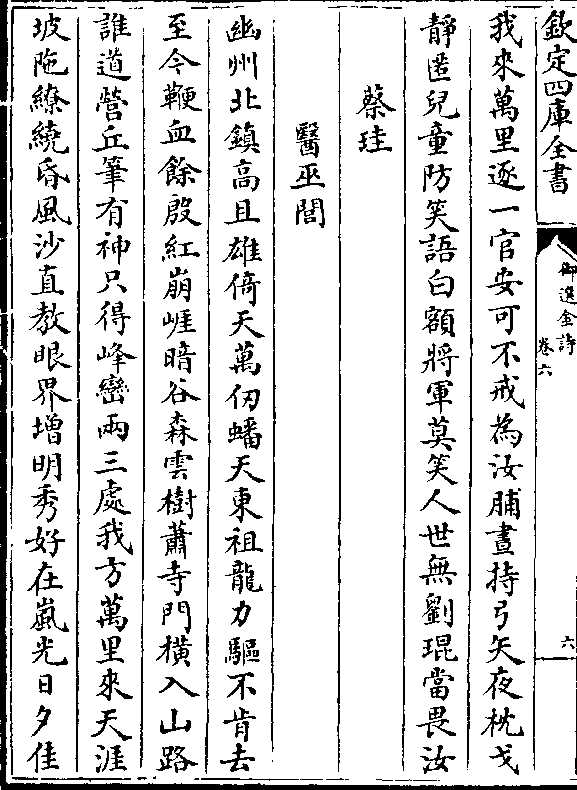 欽定四庫全書
御選金詩
卷六
六
我來萬里逐一官安可不戒為汝脯晝持弓矢夜枕戈
靜匿兒童防笑語白額將軍莫笑人世無劉琨當畏汝
蔡珪
醫巫閭
幽州北鎮高且雄倚天萬仞蟠天東祖龍力驅不肯去
至今鞭血餘殷紅崩崕暗谷森雲樹蕭寺門橫入山路
誰道營丘筆有神只得峰巒兩三處我方萬里來天涯
坡陁繚繞昏風沙直教眼界增明秀好在嵐光日夕佳